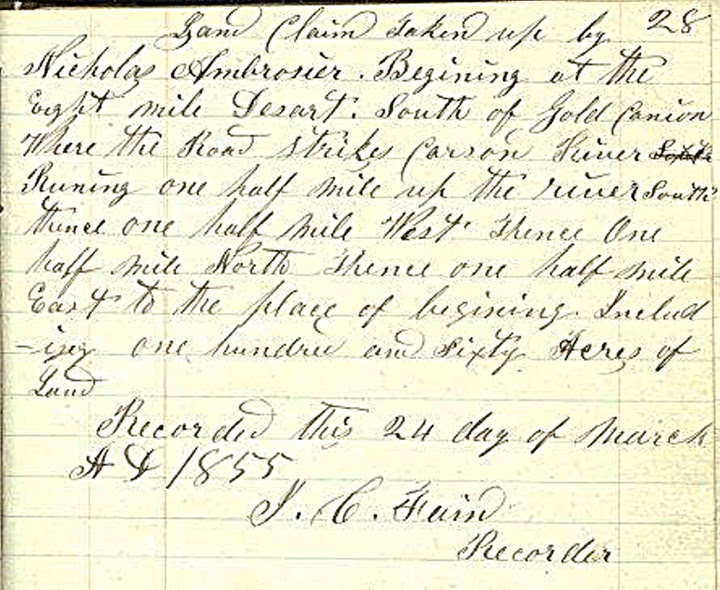 Land Claim taken up by 28
Nicholas Ambrosier. Begining at the
Eight mile Desart. South of Gold Canion
Where the Road strikes Carson River
Runing one half mile up the river South
thence one half mile West. Thence One
half mile North Thence one half mile
East to the place of begining. Includ
-ing one hundred and sixty Acres of
Land
Recorded this 24 day of March
A D 1855
J. C. Fain
Recorder